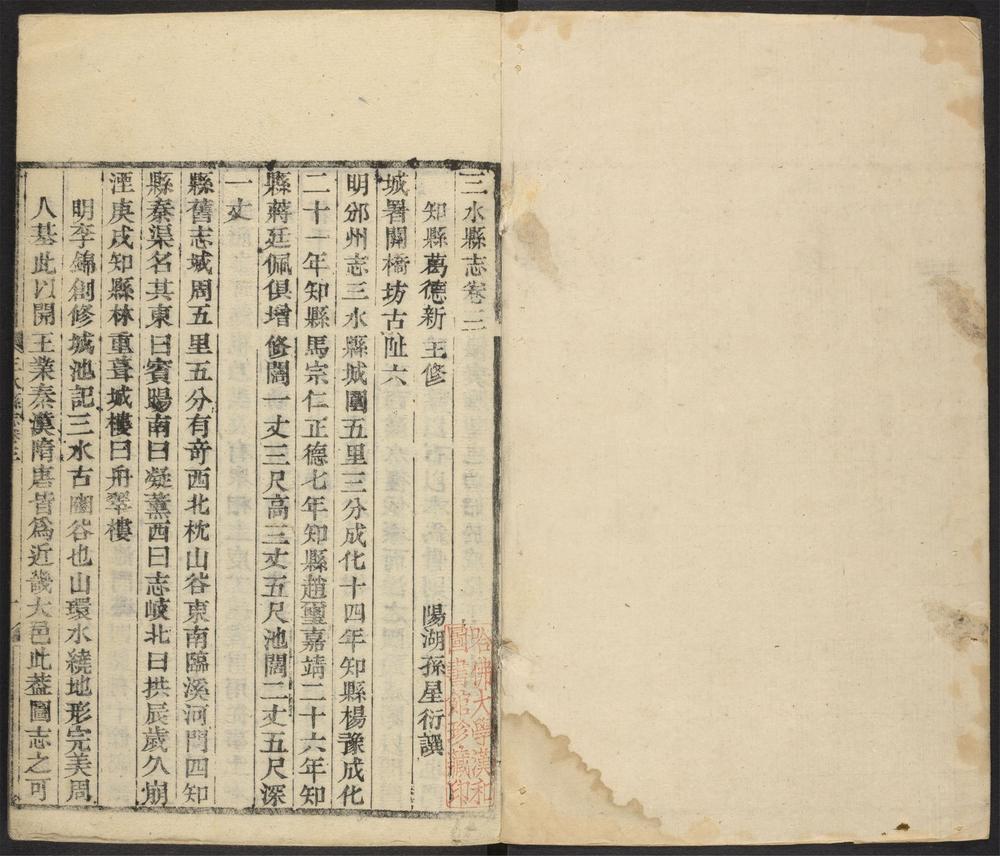 三水縣志卷三
知縣葛德新主修
陽湖孫星衍譔
城署關橋坊古阯六
明邠州志三水縣城圍五里三分成化十四年知縣楊豫成化
二十一年知縣馬宗仁正德七年知縣趙璽嘉靖二十六年知
縣蔣廷佩俱增修闊一丈三尺高三丈五尺池闊二丈五尺深
一丈
縣舊志城周五里五分有奇西北枕山谷東南臨溪河門四知
縣秦渠名其東曰賓陽南曰凝薰西曰志岐北曰拱辰歲久崩
湮庚戌知縣林重葺城樓曰舟翠樓
明李錦創修城池記三水古豳谷也山環水繞地形完美周
人基此以開王業秦漢隋唐皆爲近畿大邑此葢圖志之可
三水縣志卷三
一
哈佛大學漢和
圖書館珍藏印